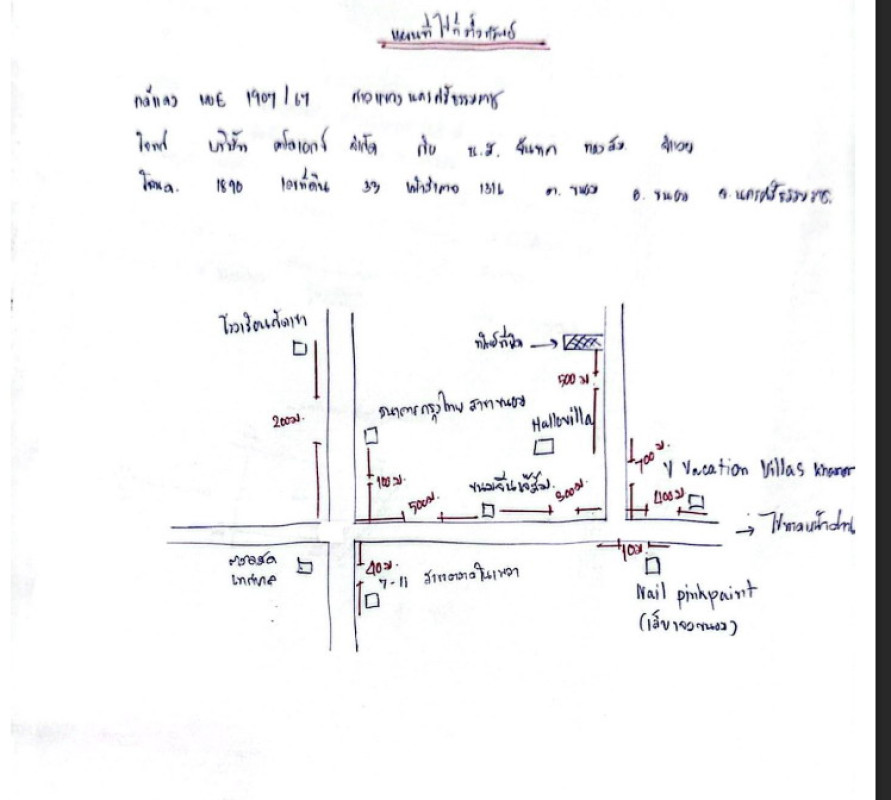 แผนที่ไปที่ตั้งทรัพย์
คดีแดง ผบE 1907/67 ศาลแขวงนครศรีธรรมราช
โจทก์ บริษัท จำกัด กับ น.ส. จันทนา ทองสม จำเลย
โฉนด. 1890 เลขที่ดิน 33 หน้าสำรวจ 1316 ต. ขนอม อ. ขนอม จ. นครศรีธรรมราช.
โรงเรียนวัดเขา
200ม.
ทรัพย์ที่ยึด
500 ม
ธนาคารกรุงไทย สาขาขนอม
Hallovilla
100ม.
ขนมจีน
500ม
300ม.
700ม.
V Vacation Villas khanom
400ม
ไปหาดหน้าด่าน
ตลาดสด
เทศบาล
40ม.
7-11 สาขาตลาดในเพลา
10ม.
Nail pinkpaint
(เล็บเจลขนอม)